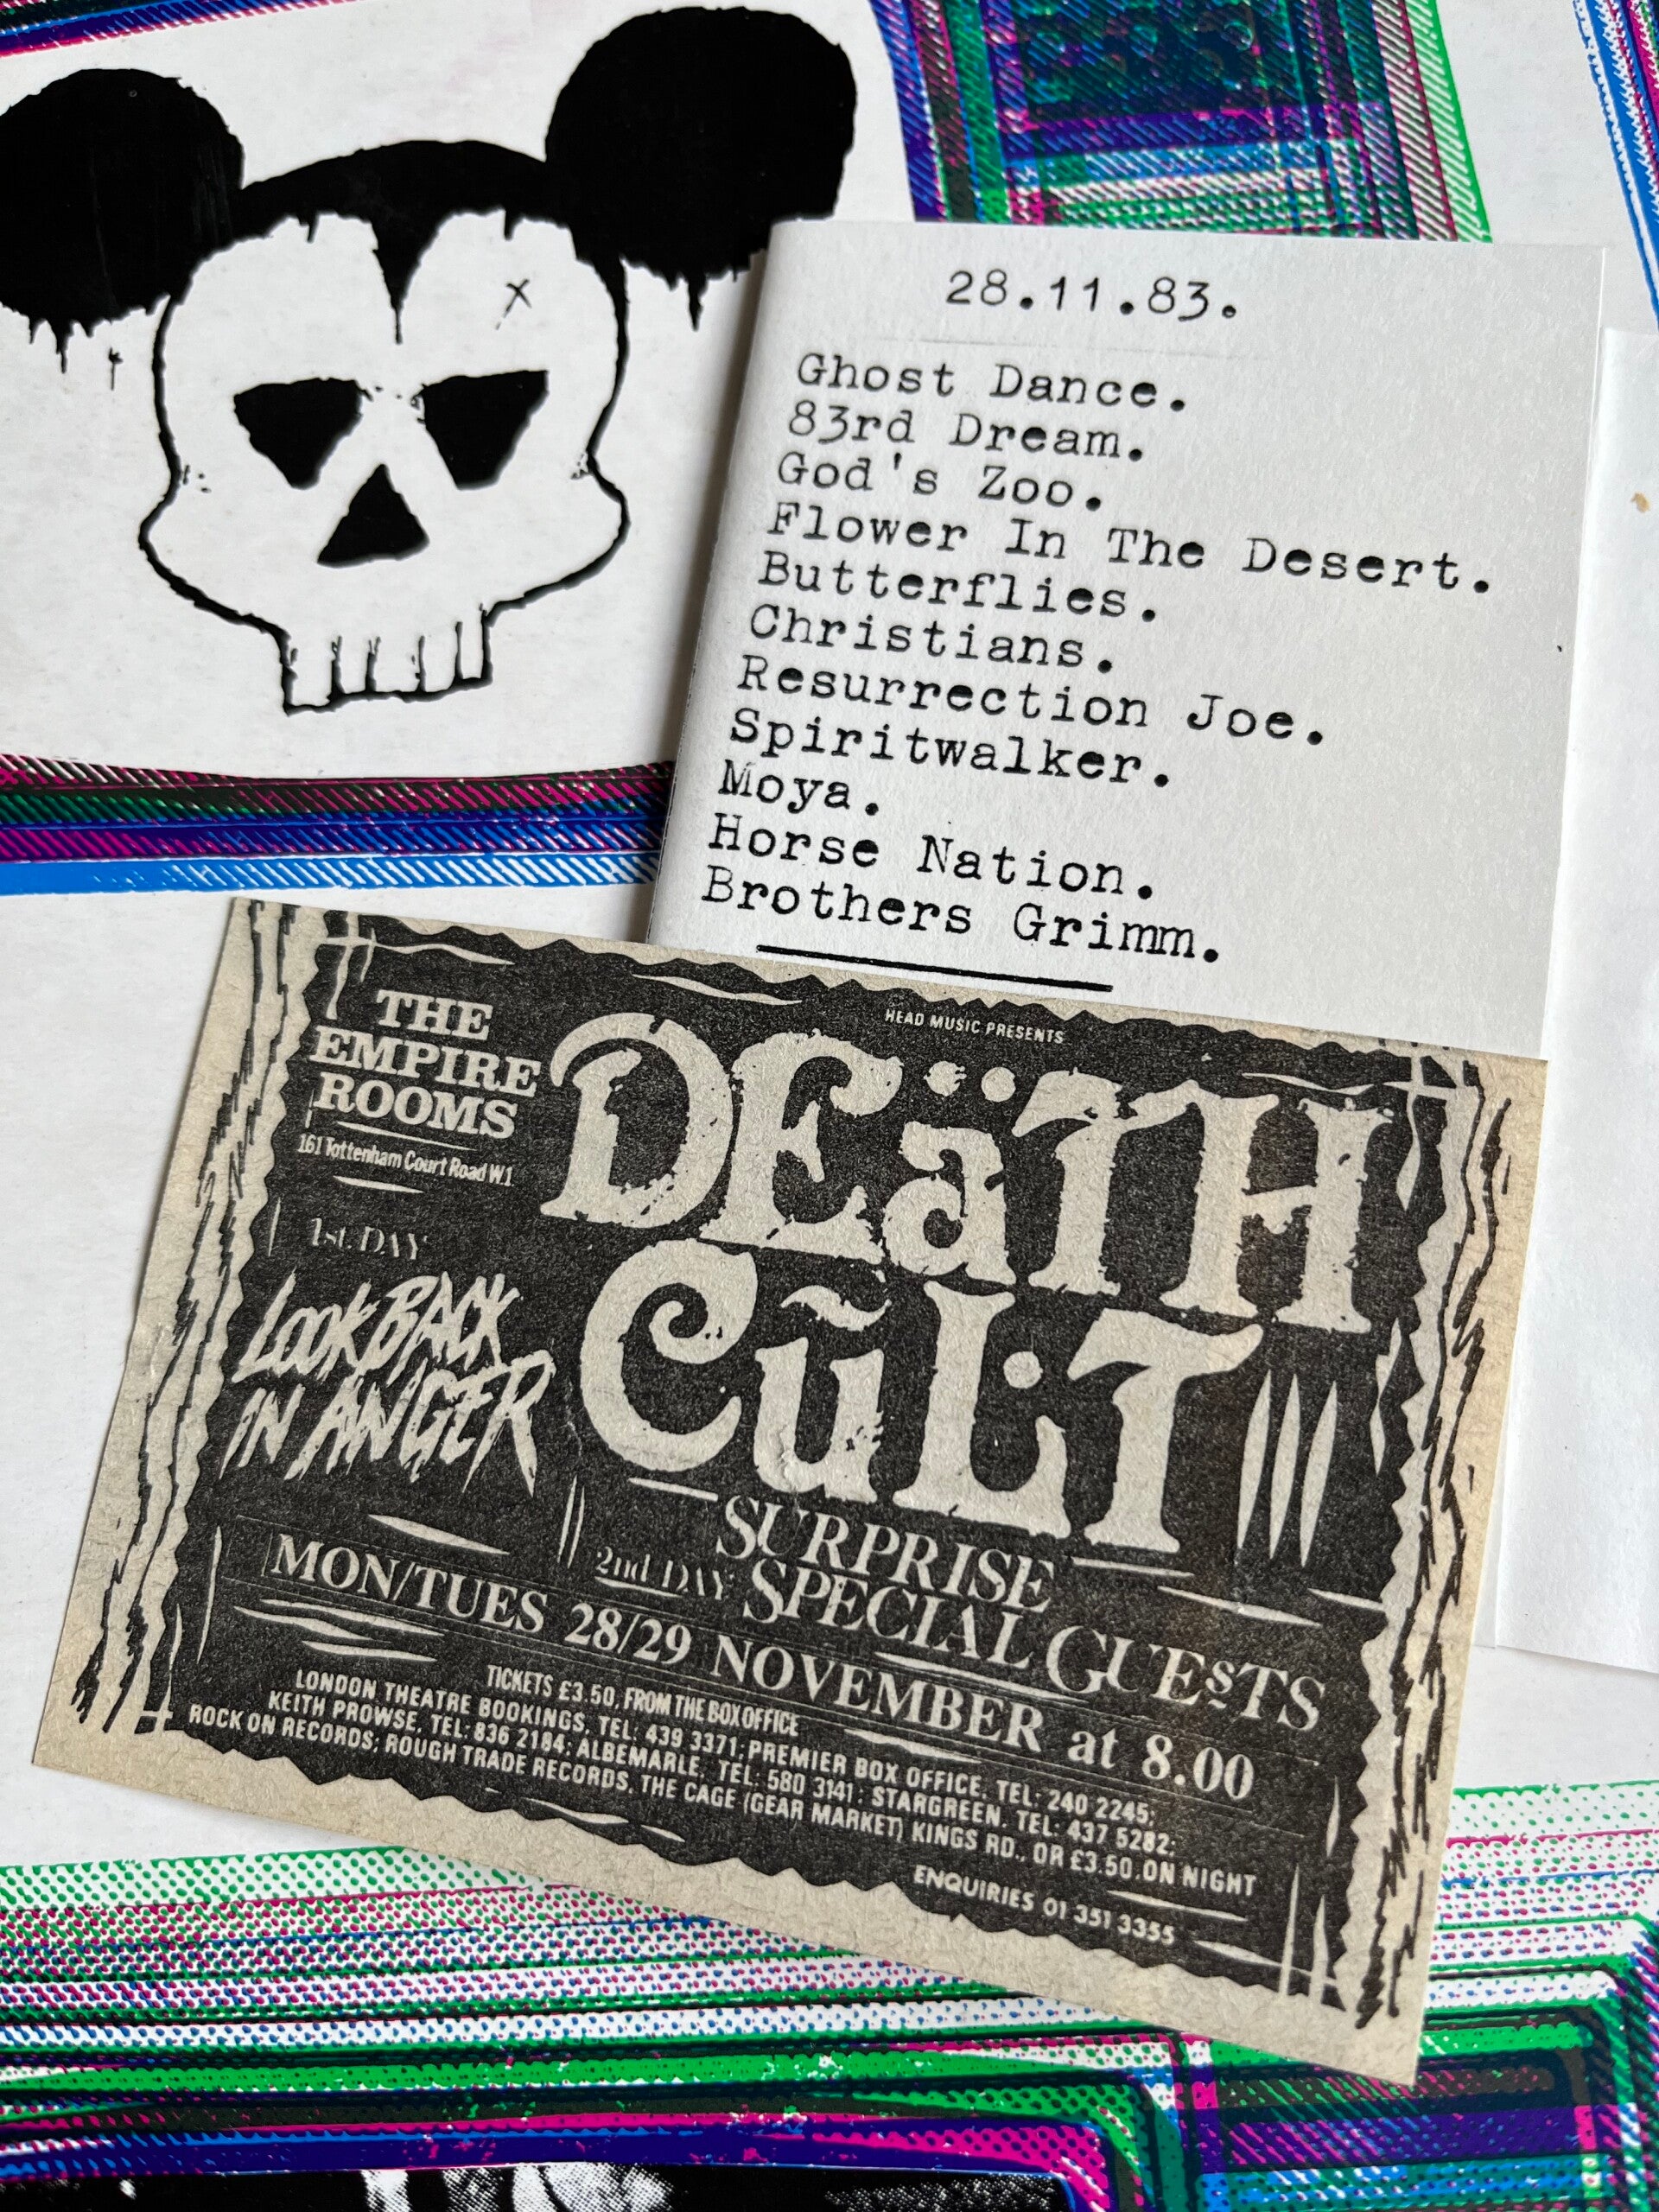 28.11.83.
Ghost Dance.
83rd Dream.
God's Zoo.
Flower In The Desert.
Butterflies.
Christians.
Resurrection Joe.
Spiritwalker.
Moya.
Horse Nation.
Brothers Grimm.
HEAD MUSIC PRESENTS
THE
EMPIRE
ROOMS
161 Tottenham Court Road W.1
DEäTH
CũLT
1st DAY
LOOK BACK
IN ANGER
2nd DAY
SURPRISE
SPECIAL GUEsTS
MON/TUES 28/29 NOVEMBER at 8.00
TICKETS £3.50, FROM THE BOX OFFICE
LONDON THEATRE BOOKINGS, TEL: 439 3371; PREMIER BOX OFFICE, TEL: 240 2245;
KEITH PROWSE, TEL: 836 2184; ALBEMARLE, TEL: 580 3141; STARGREEN, TEL: 437 5282;
ROCK ON RECORDS; ROUGH TRADE RECORDS, THE CAGE (GEAR MARKET) KINGS RD., OR £3.50 ON NIGHT
ENQUIRIES 01 351 3355